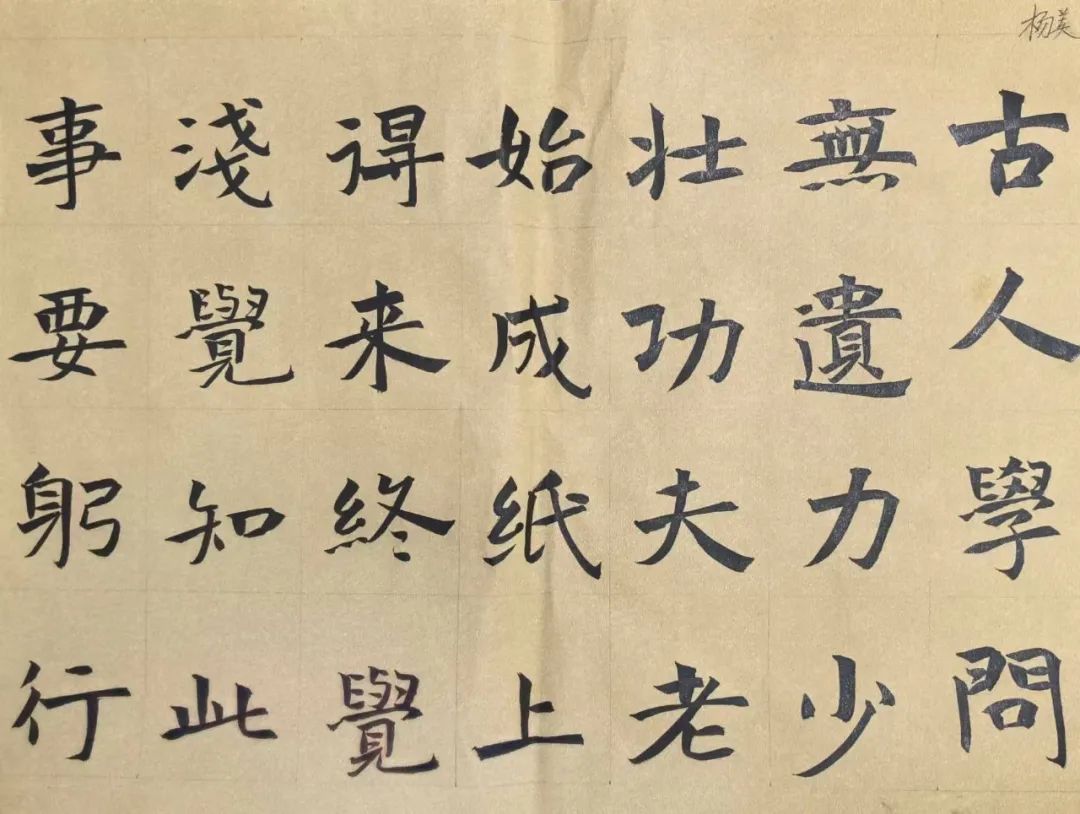 杨美
古人學問
無遺力少
壯功夫老
始成紙上
得来終覺
淺覺知此
事要躬行